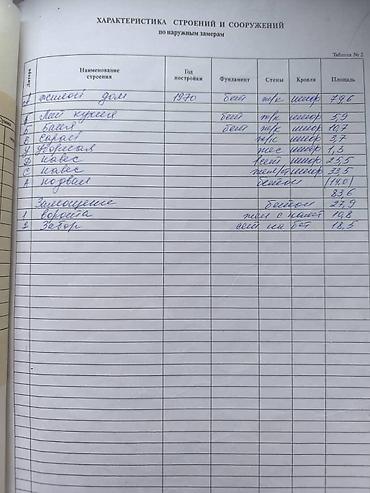 ХАРАКТЕРИСТИКА СТРОЕНИЙ И СООРУЖЕНИЙ
по наружным замерам
Таблица № 2
Литера Наименование строения Год постройки Фундамент Стены Кровля Площадь
А жилой дом 1970 бет ж/к шиф 79,6
лет кухня бет ж/к шиф 5,9
Б баня бет ж/к шиф 10,7
сарай ж/к шиф 3,7
У уборная жес шиф 1,3
навес шиф 25,5
навес шиф 33,5
подвал бетон (14,0)
83,6
Замощение бетон 27,9
1 ворота жел с 10,8
2 Забор 18,5